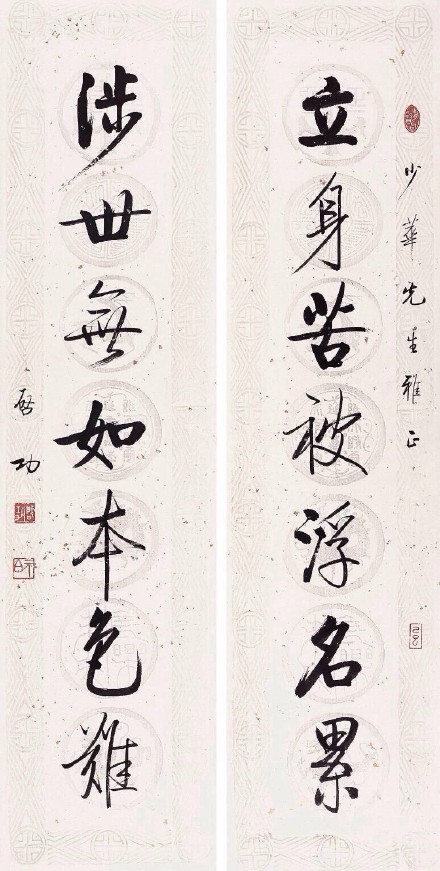 少華先生雅正
立身苦被浮名累
涉世無如本色難
啟功